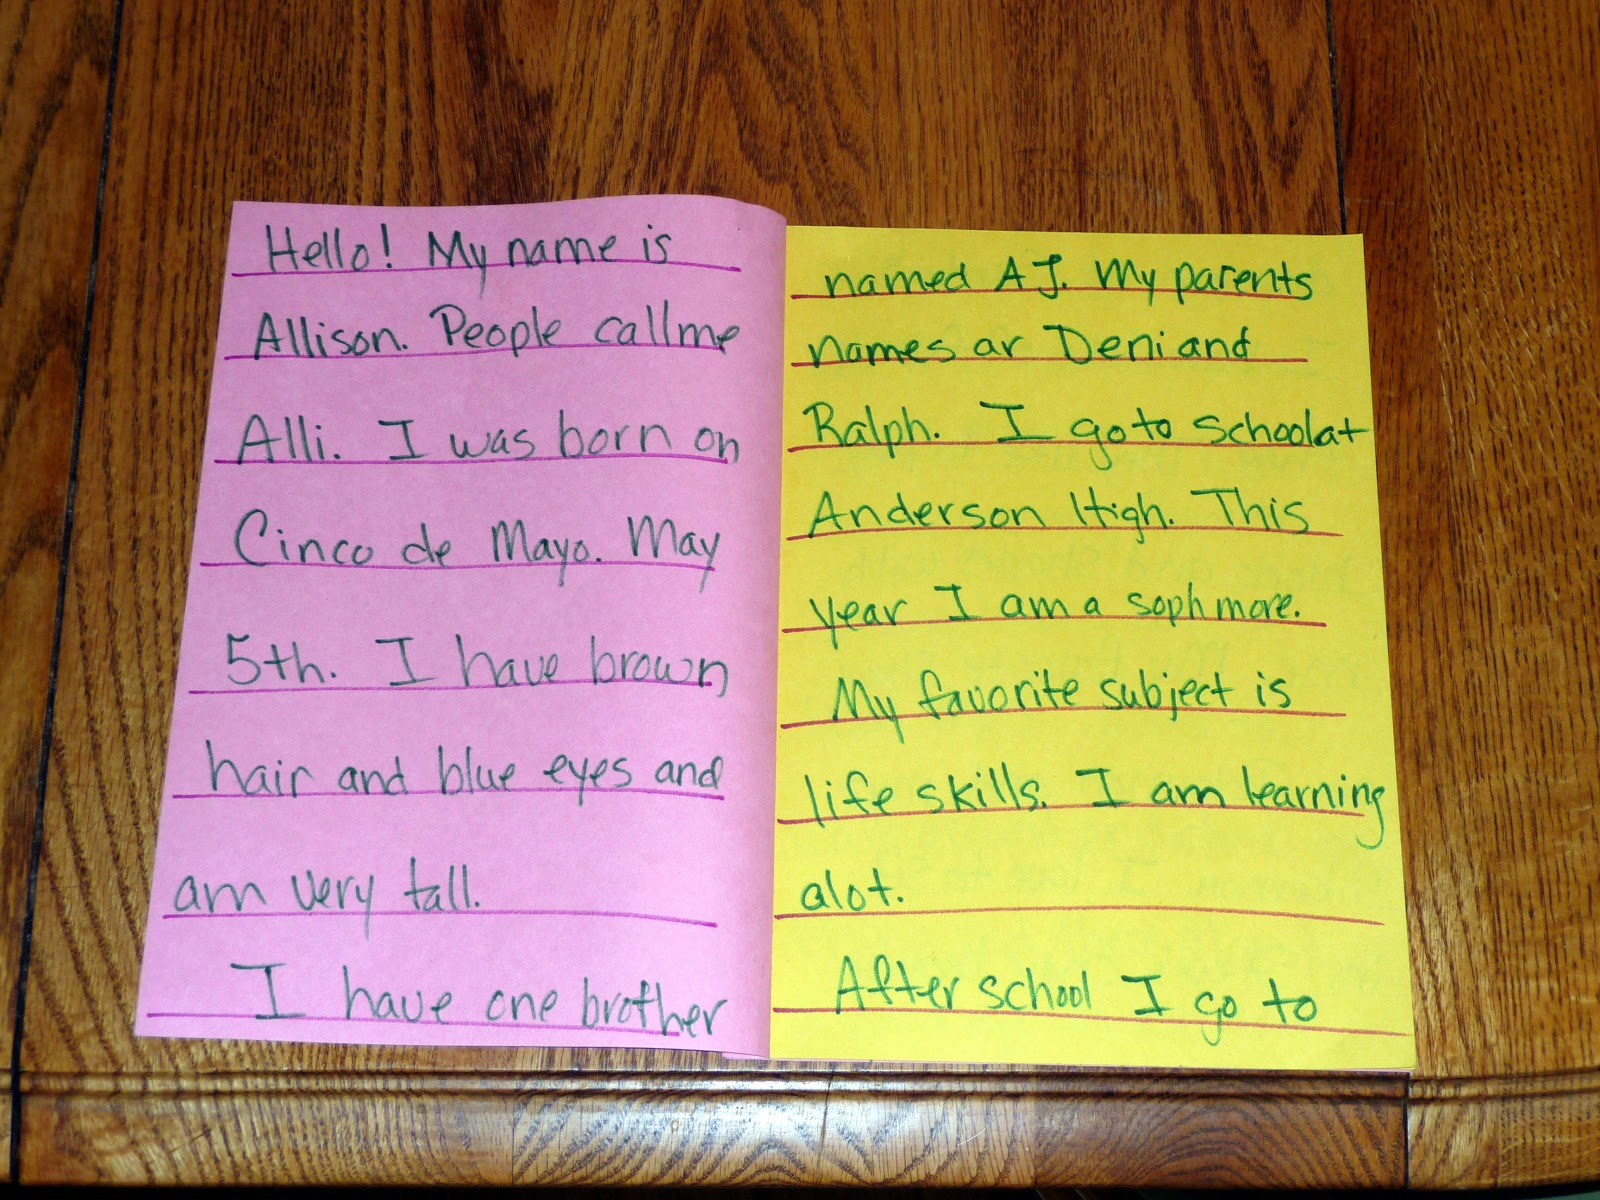 Hello! My name is
Allison. People call me
Alli. I was born on
Cinco de Mayo. May
5th. I have brown
hair and blue eyes and
am very tall.
I have one brother
named AJ. My parents
names ar Deni and
Ralph. I go to school at
Anderson High. This
year I am a sophmore.
My favorite subject is
life skills. I am learning
alot.
After school I go to